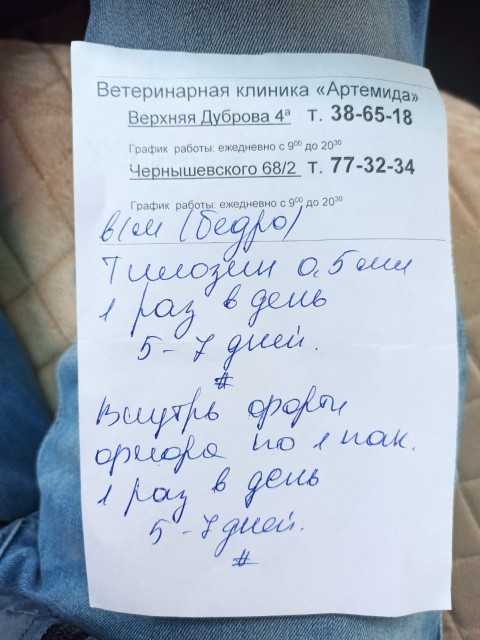 Ветеринарная клиника «Артемида»
Верхняя Дуброва 4а т. 38-65-18
График работы: ежедневно с 9⁰⁰ до 20³⁰
Чернышевского 68/2 т. 77-32-34
График работы: ежедневно с 9⁰⁰ до 20³⁰
в/м (бедро)
Тилозин 0,5 мл
1 раз в день
5-7 дней.
#
Внутрь форти
флора по 1 пак.
1 раз в день
5-7 дней.
#